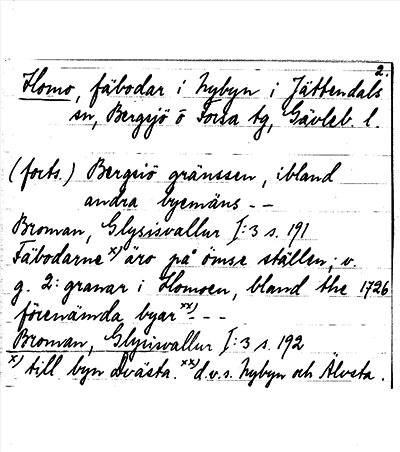 2.
Homo, fäbodar i Nybyn i Jättendals
sn, Bergsjö o Forsa tg, Gävleb. l.
(forts.) Bergsiö gränssen, ibland
andra byemäns - -
Broman, Glysisvallur I:3 s. 191
Fäbodarne x) äro på ömse ställen; v.
g. 2: granar i Homoen, bland the 1726
förenämda byar xx) - -
Broman, Glysisvallur I:3 s. 192
x) till byn Dvästa. xx) d.v.s. Nybyn och Älvsta.